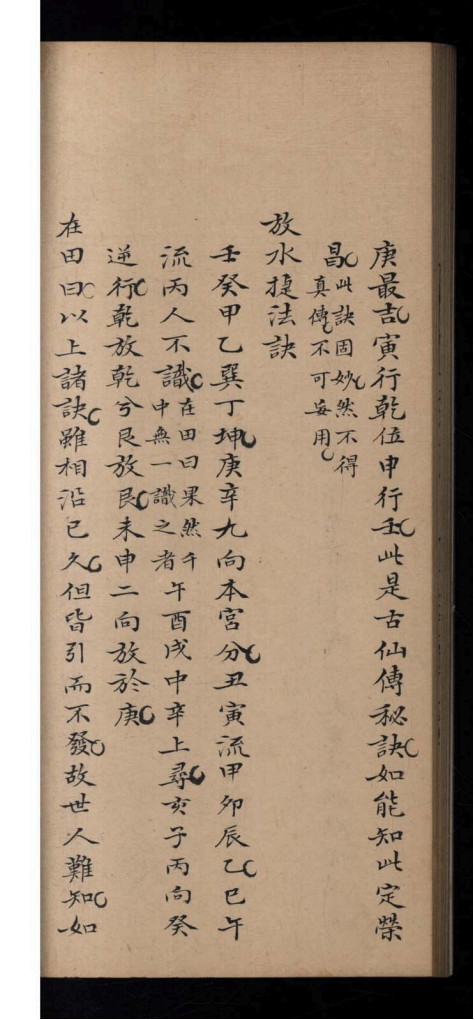 庚最吉寅行乾位申行壬此是古仙傳秘訣如能知此定榮
昌
此訣固妙然不得
真傳不可妄用
放水捷法訣
壬癸甲乙巽丁坤庚辛九向本宮分丑寅流甲卯辰乙巳午
流丙人不識
在田曰果然千
中無一識之者
午酉戌中辛上尋亥子丙向癸
逆行乾放乾兮艮放艮未申二向放於庚
在田曰以上諸訣雖相沿已久但皆引而不發故世人難知如